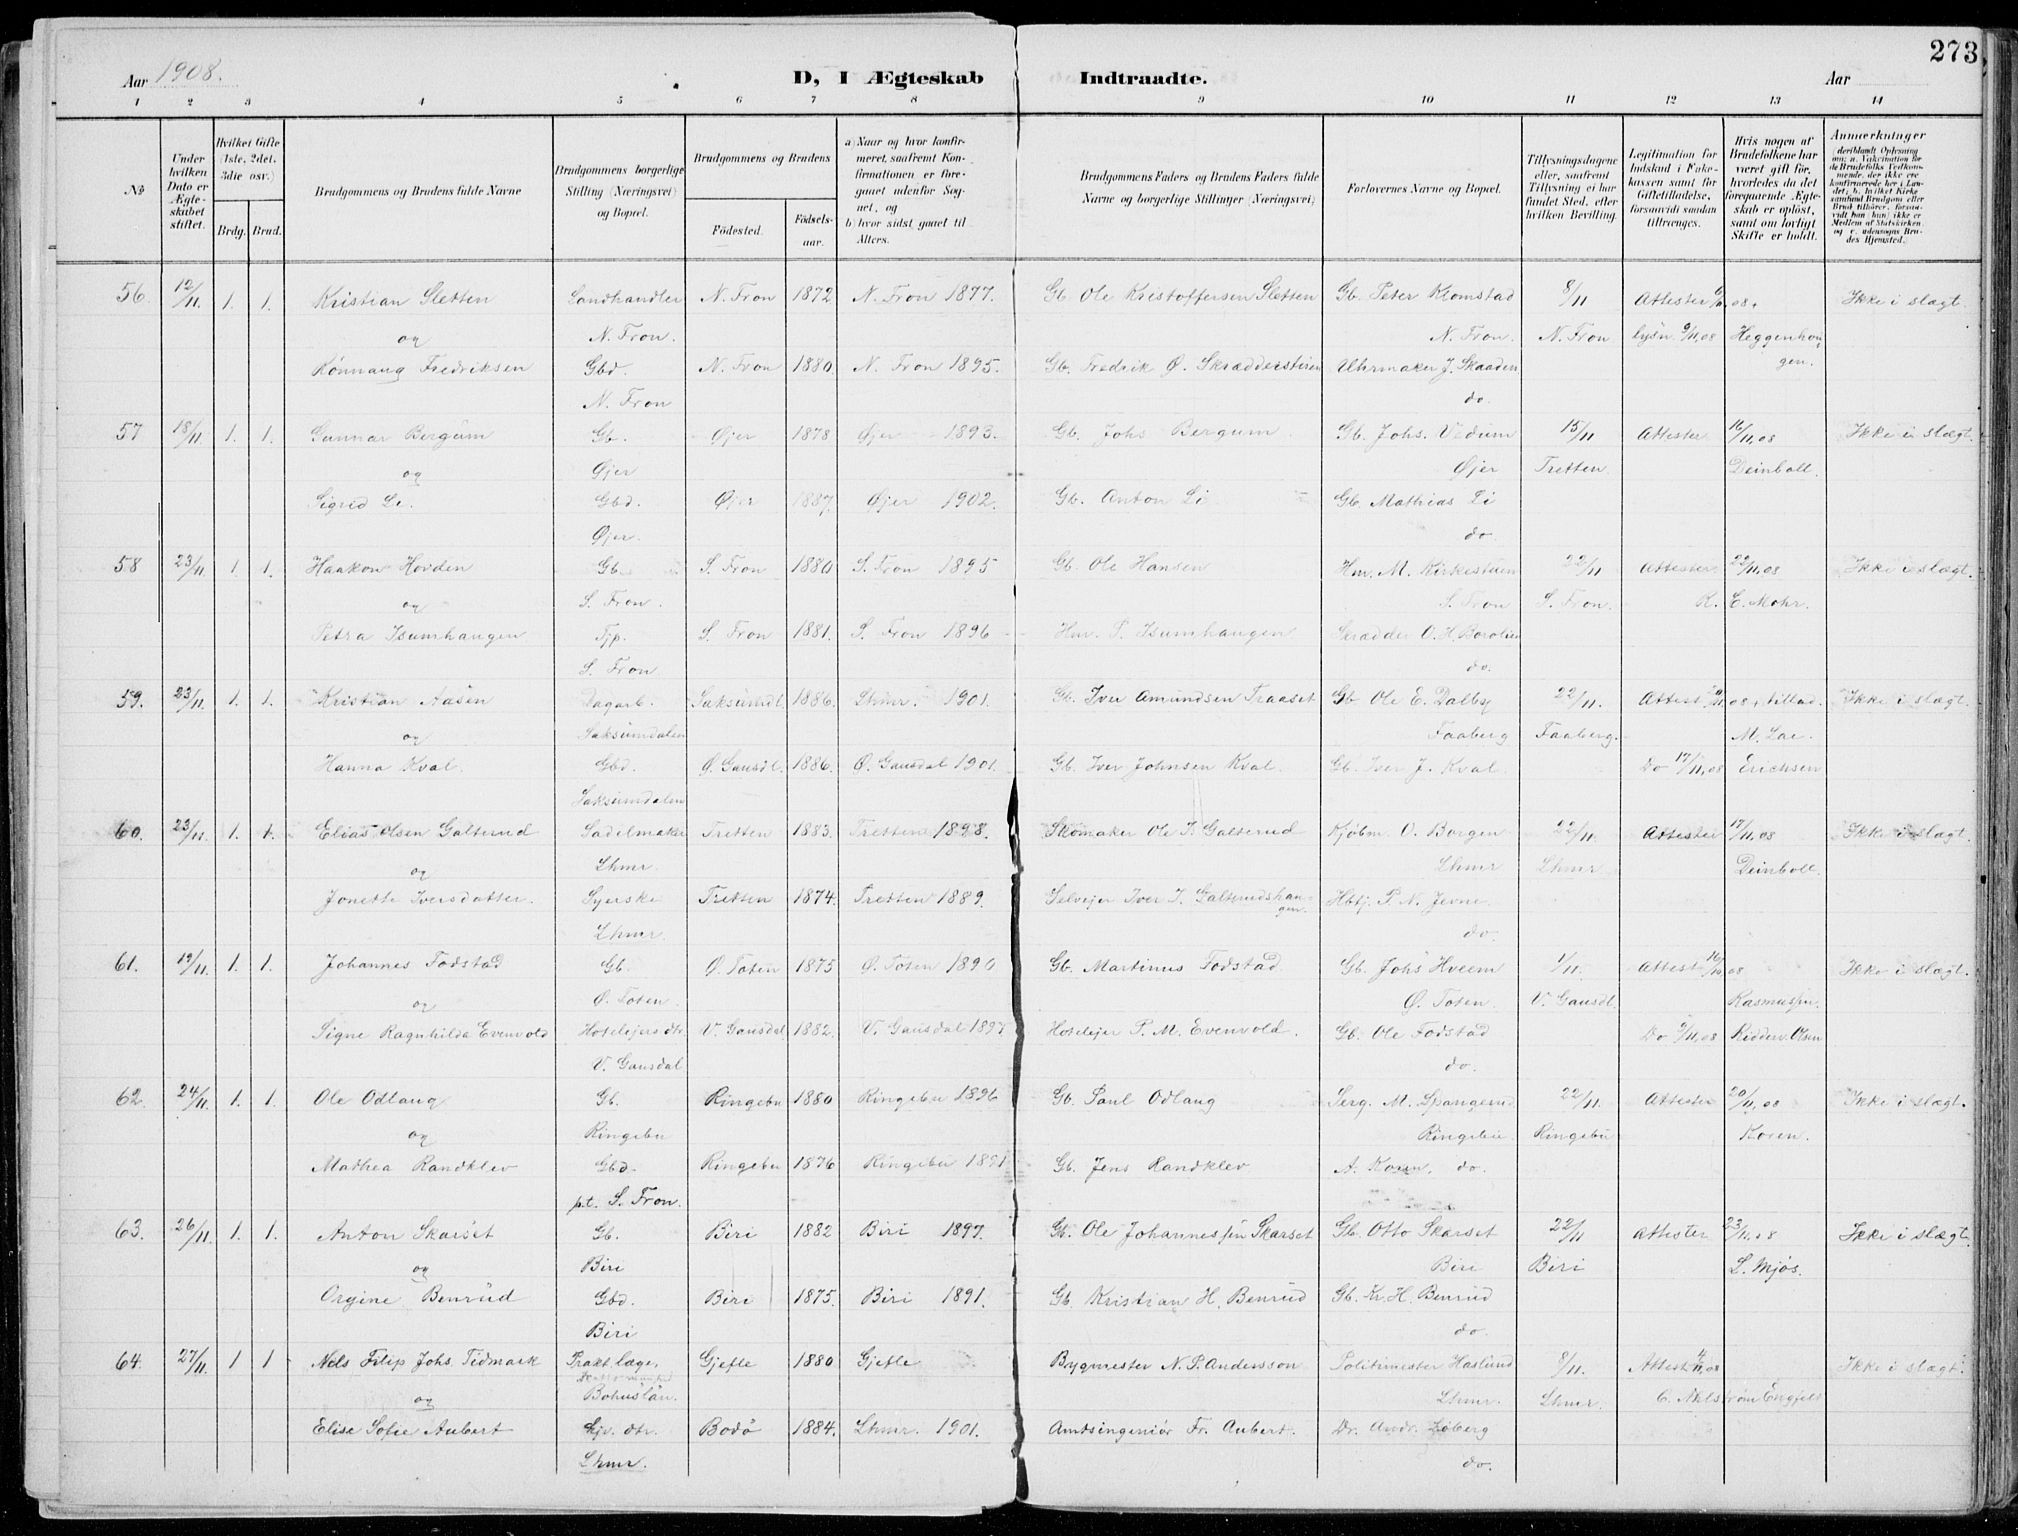 273
Aar 1908.
D, I Ægteskab Indtraadte.
Aar
1 2 3 4 5 6 7 8 9 10 11 12 13 14
№
Under hvilken Dato er Ægteskabet stiftet.
Hvilket Gifte (1ste, 2det, 3die osv.)
Brdg. Brud.
Brudgommens og Brudens fulde Navne
Brudgommens borgerlige Stilling (Næringsvei) og Bopæl.
Brudgommens og Brudens
Fødested. Fødselsaar.
a) Naar og hvor konfirmeret, saafremt Konfirmationen er foregaaet udenfor Sognet, og
b) hvor sidst gaaet til Alters.
Brudgommens Faders og Brudens Faders fulde Navne og borgerlige Stillinger (Næringsvei)
Forlovernes Navne og Bopæl.
Tillysningsdagene eller, saafremt Tillysning ei har fundet Sted, efter hvilken Bevilling.
Legitimation for Indskud i Enkekassen samt for Giftetilladelse, forsaavidt saadan tiltrænges.
Hvis nogen af Brudefolkene har været gift før, hvorledes da det foregaaende Ægteskab er opløst, samt om lovligt Skifte er holdt.
Anmærkninger (deriblandt Oplysning om: a. Vakcination for de Brudefolks Vedkommende, der ikke ere konfirmerede her i Landet; b. hvilket Kirkesamfund Brudgom eller Brud tilhører, forsaavidt han (hun) ikke er Medlem af Statskirken, og c. udensogns Brudes Hjemsted.
56. 12/11. 1. 1. Kristian Sletten Landhandler N. Fron 1872 N. Fron 1877. Gb. Ole Kristoffersen Sletten Gb. Peter Klomstad 8/11 Attester 6/11, 08, Ikke i slægt.
og N. Fron. N. Fron. N. Fron lysn. 9/11, 08 Heggenhou-
Rønnaug Fredriksen Gbd. N. Fron 1880 N. Fron 1895. Gb. Fredrik Ø. Skrædderstuen Uhrmaker J. Skaaden gen.
N. Fron do.
57 18/11. 1. 1. Gunnar Bergum Gb. Øjer 1878 Øjer 1893. Gb. Johs Bergum Gb. Johs. Vedum 15/11 Attester 16/11, 08 Ikke i slægt.
og Øjer Øjer Tretten. Deinboll.
Sigrid Li. Gbd. Øjer 1887. Øjer 1902. Gb. Anton Li Gb. Mathias Li
Øjer. do.
58 23/11. 1. 1. Haakon Hovden Gb. S. Fron 1880 S. Fron 1895 Gb. Ole Hansen Hm. M. Kirkestuen 22/11 Attester 22/11, 08 Ikke i slægt.
og S. Fron. S. Fron S. Fron. K. E. Mohr.
Petra Isumhaugen Tjp. S. Fron 1881. S. Fron 1896 Hm. P. Isumhaugen Skrædder O. H.
S. Fron do.
59. 23/11. 1. 1. Kristian Aasen Dagarb. Saksumdl. 1886. Lhmr. 1901. Gb. Iver Amundsen Traaset Gb Ole E. Dalby 22/11. Attest 20/11 08 + tillad. Ikke i slægt.
og Saksumdalen Faaberg Faaberg. M. Lae.
Hanna Kval. Gbd. Ø. Gausdl. 1886. Ø. Gausdal 1901. Gb. Iver Johnsen Kval. Gb. Iver J. Kval. Do 17/11, 08 Erichsen
Saksumdalen
60. 23/11. 1. 1. Elias Olsen Galterud Sadelmaker Tretten 1883. Tretten 1898. Skomaker Ole I. Galterud Kjøbm. O. Borgen 22/11. Attester 17/11, 08 Ikke i slægt.
og Lhmr. Lhmr Lhmr. Deinboll.
Jonette Iversdatter. Syerske Tretten 1874. Tretten 1889. Selvejer Iver I. Galterudshau- Hbtj. P. N. Jevne.
gen. Lhmr. do.
61. 19/11. 1. 1. Johannes Fodstad Gb. Ø. Toten 1875 Ø. Toten 1890 Gb. Martinus Fodstad Gb. Johs Hveem 1/11. Attest 16/10 08 Ikke i slægt.
og Ø. Toten. Ø. Toten. V. Gausdl. Rasmussen.
Signe Ragnhilda Evenvold Hotelejers dtr. V. Gausdal 1882. V. Gausdal 1897 Hotelejer P. M. Evenvold. Gb. Ole Fodstad Do 9/11, 08 Ridderv. Olsen
V. Gausdal do.
62. 24/11. 1. 1. Ole Odlaug Gb. Ringebu 1880 Ringebu 1896 Gb. Paul Odlaug Serg. M. Spangerud 22/11. Attester 20/11, 08 Ikke i slægt.
og Ringebu Ringebu. Ringebu Koren.
Mathea Randklev Gbd. Ringebu 1876 Ringebu 1891 Gb. Jens Randklev A. Koren, do.
p.t. S. Fron.
63. 26/11. 1 1. Anton Skarset Gb. Biri 1882 Biri 1897. Gb. Ole Johannessen Skarset Gb. Otto Skarset 22/11 Attester 23/11, 08 Ikke i slægt.
og Biri Biri Biri L. Mjøs.
Orgine Benrud Gbd. Biri 1875. Biri 1891. Gb. Kristian H. Benrud Gb. Kr. H. Benrud
Biri do.
64. 27/11. 1 1 Nils Filip Johs. Tidmark Prakt. læge, Gjefle 1880 Gjefle Bygmester N. P. Andersson Politimester Haslund 8/11. Attest 4/11, 08 Ikke i slægt.
og Bohuslän. Lhmr. Lhmr.
Elise Sofie Aubert Hjv. dtr. Bodø 1884. Lhmr. 1901. Amtsingeniør Fr. Aubert. Dr. Andr. Løberg
Lhmr. do.